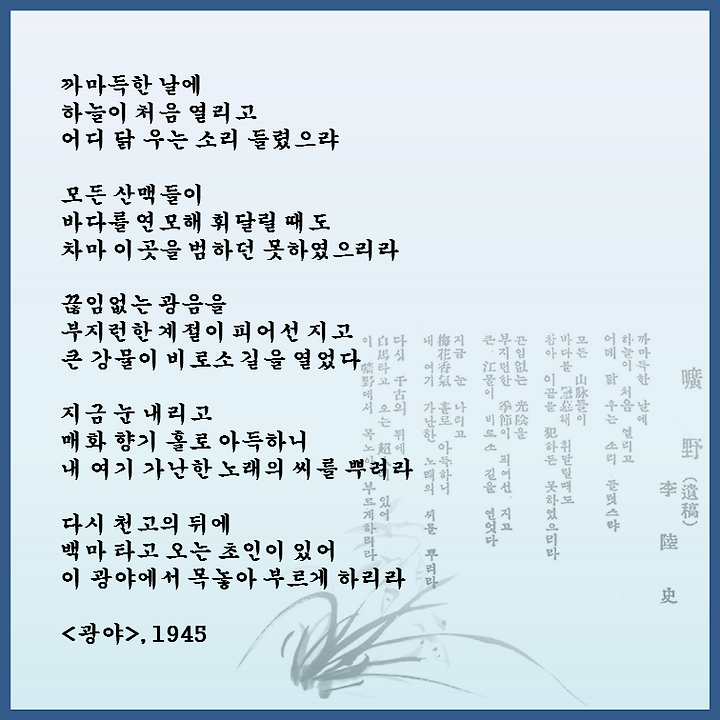 까마득한 날에
하늘이 처음 열리고
어디 닭 우는 소리 들렸으랴
모든 산맥들이
바다를 연모해 휘달릴 때도
차마 이곳을 범하던 못하였으리라
끊임없는 광음을
부지런한 계절이 피어선 지고
큰 강물이 비로소 길을 열었다
지금 눈 내리고
매화 향기 홀로 아득하니
내 여기 가난한 노래의 씨를 뿌려라
다시 천고의 뒤에
백마 타고 오는 초인이 있어
이 광야에서 목놓아 부르게 하리라
<광야>, 1945
曠野 (遺稿)
李陸史
까마득한 날에
하늘이 처음 열리고
어데 닭 우는 소리 들렷스랴
모든 山脉들이
바다를 戀慕해 휘달릴때도
참아 이곧을 犯하든 못하였으리라
끈임없는 光陰을
부지런한 季節이 픠어선 지고
큰 江물이 비로소 길을 열엇다
지금 눈 나리고
梅花香氣 홀로 아득하니
내 여기 가난한 노래의 씨를 뿌려라
다시 千古의 뒤에
白馬타고 오는 超人이 있어
이 曠野에서 목노아 부르게하리라